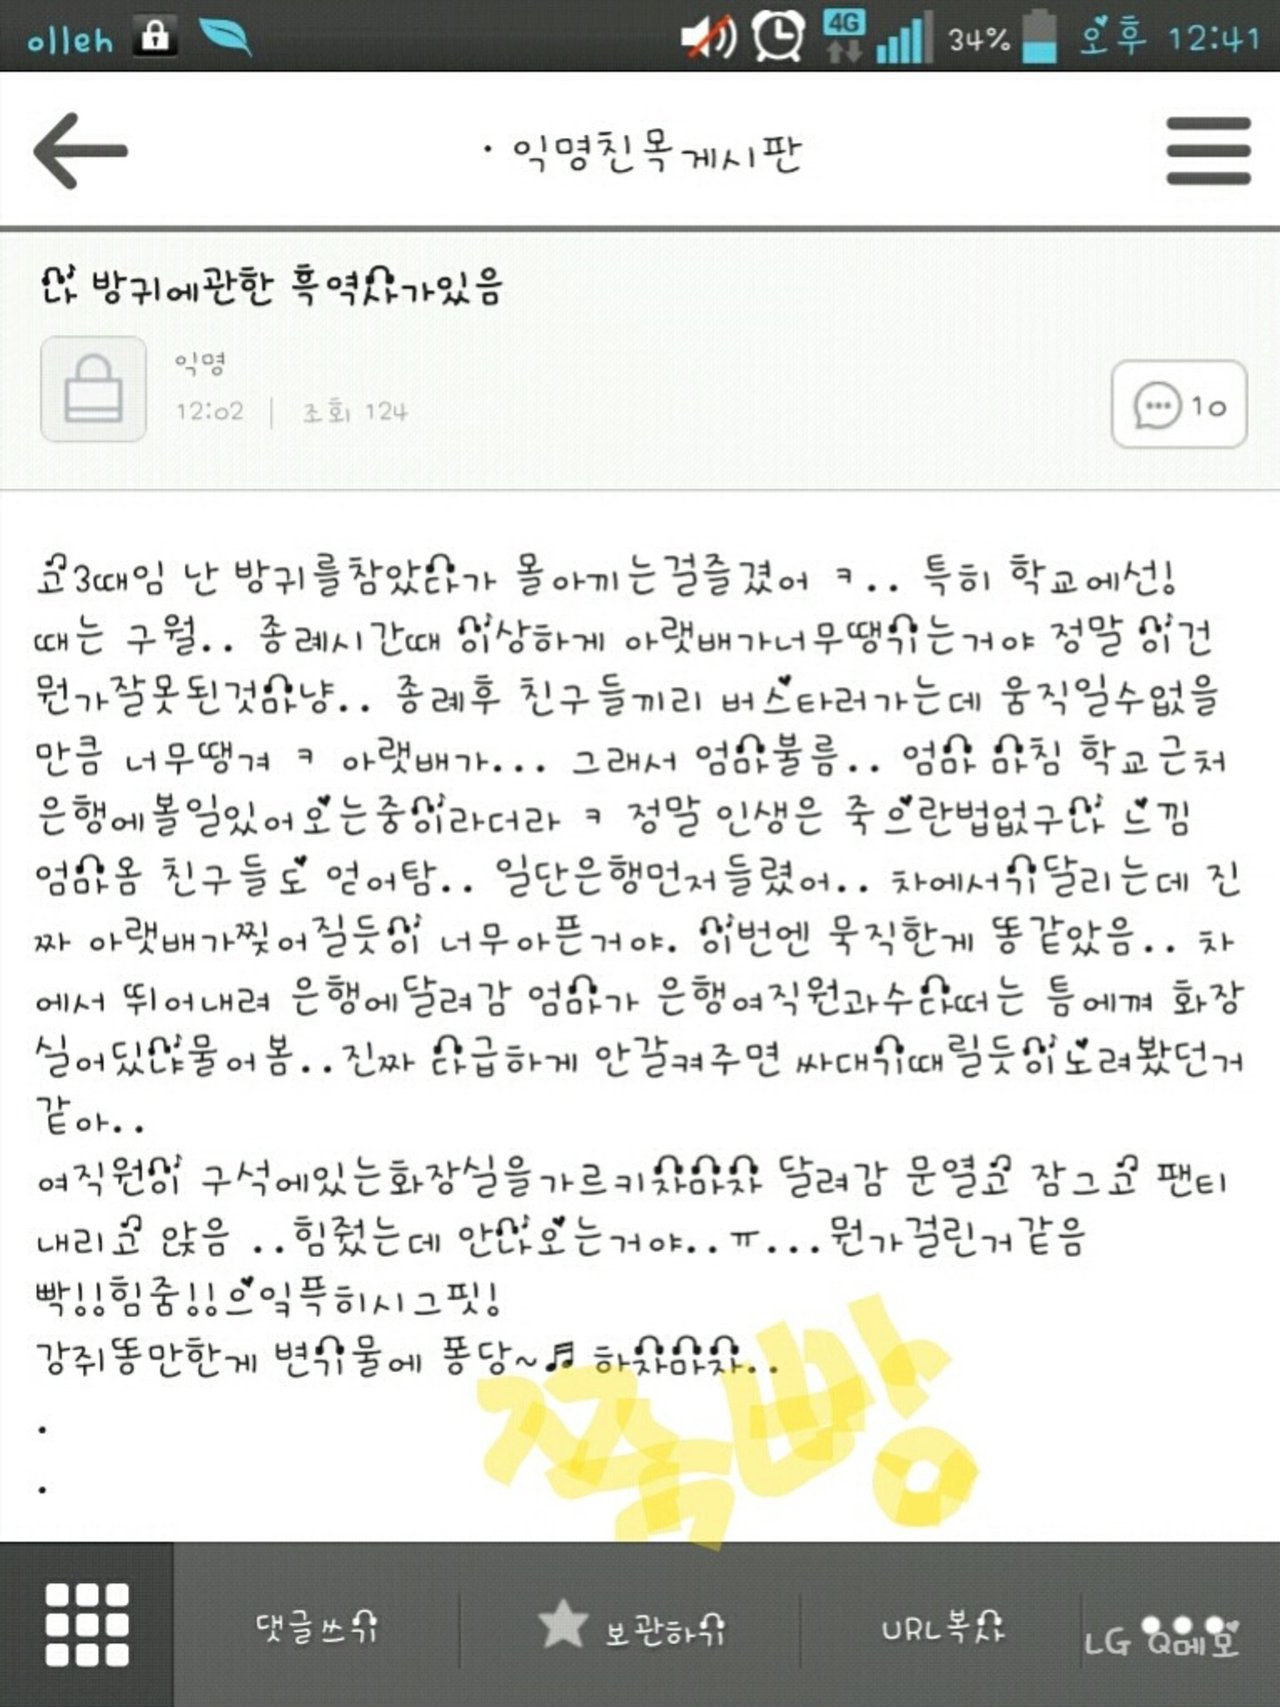 olleh 4G 34% 오후 12:41
· 익명친목게시판
나 방귀에관한 흑역사가있음
익명
12:02 | 조회 124
10
고3때임 난 방귀를참았다가 몰아끼는걸즐겼어 ㅋ.. 특히 학교에선!
때는 구월.. 종례시간때 이상하게 아랫배가너무땡기는거야 정말 이건
뭔가잘못된것마냥.. 종례후 친구들끼리 버스타러가는데 움직일수없을
만큼 너무땡겨 ㅋ 아랫배가... 그래서 엄마불름.. 엄마 마침 학교근처
은행에볼일있어오는중이라더라 ㅋ 정말 인생은 죽으란법없구나 느낌
엄마옴 친구들도 얻어탐.. 일단은행먼저들렸어.. 차에서기달리는데 진
짜 아랫배가찢어질듯이 너무아픈거야. 이번엔 묵직한게 똥같았음.. 차
에서 뛰어내려 은행에달려감 엄마가 은행여직원과수다떠는 틈에껴 화장
실어딨냐물어봄..진짜 다급하게 안갈켜주면 싸대기때릴듯이노려봤던거
같아..
여직원이 구석에있는화장실을가르키자마자 달려감 문열고 잠그고 팬티
내리고 앉음 ..힘줬는데 안나오는거야..ㅠ...뭔가걸린거같음
빡!!힘줌!!으잌픅히시그핏!
강쥐똥만한게 변기물에 퐁당~♬ 하자마자..
.
.
쭉빵
댓글쓰기 보관하기 URL복사
LG Q메모